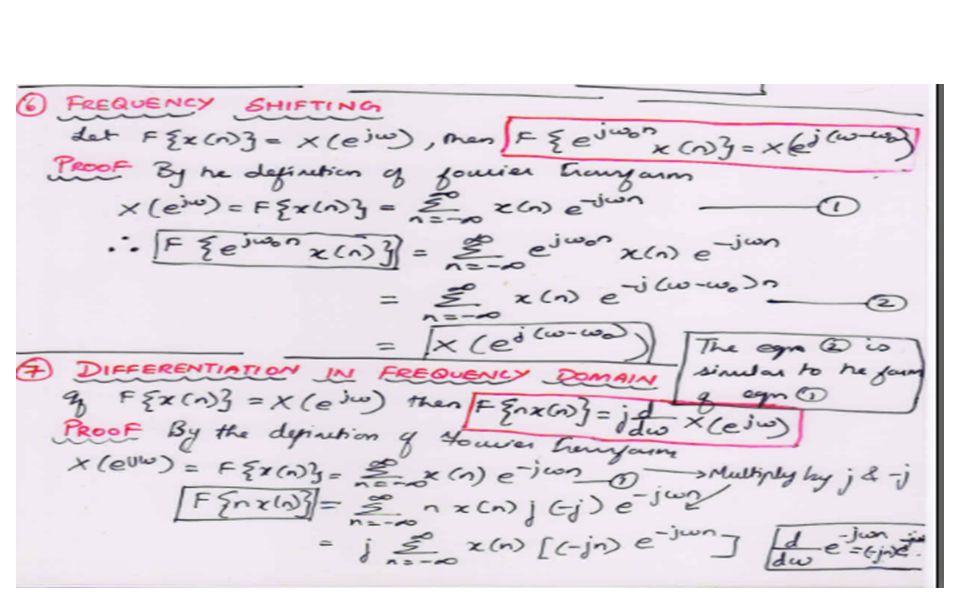 ⑥ FREQUENCY SHIFTING
Let F{x(n)} = X(e^{jω}), then F{e^{jω₀n} x(n)} = X(e^{j(ω-ω₀)})
PROOF By the definition of fourier transform
X(e^{jω}) = F{x(n)} = ∑_{n=-∞}^{∞} x(n) e^{-jωn} ①
∴ F{e^{jω₀n} x(n)} = ∑_{n=-∞}^{∞} e^{jω₀n} x(n) e^{-jωn}
= ∑_{n=-∞}^{∞} x(n) e^{-j(ω-ω₀)n} ②
= X(e^{j(ω-ω₀)})
The eqn ② is
similar to the form
of eqn ①
⑦ DIFFERENTIATION IN FREQUENCY DOMAIN
If F{x(n)} = X(e^{jω}) then F{nx(n)} = j d/dω X(e^{jω})
PROOF By the definition of Fourier transform
X(e^{jω}) = F{x(n)} = ∑_{n=-∞}^{∞} x(n) e^{-jωn} ① → Multiply by j & -j
F{nx(n)} = ∑_{n=-∞}^{∞} n x(n) j (-j) e^{-jωn}
= j ∑_{n=-∞}^{∞} x(n) [(-jn) e^{-jωn}]
d/dω e^{-jωn} = (-jn) e^{-jω